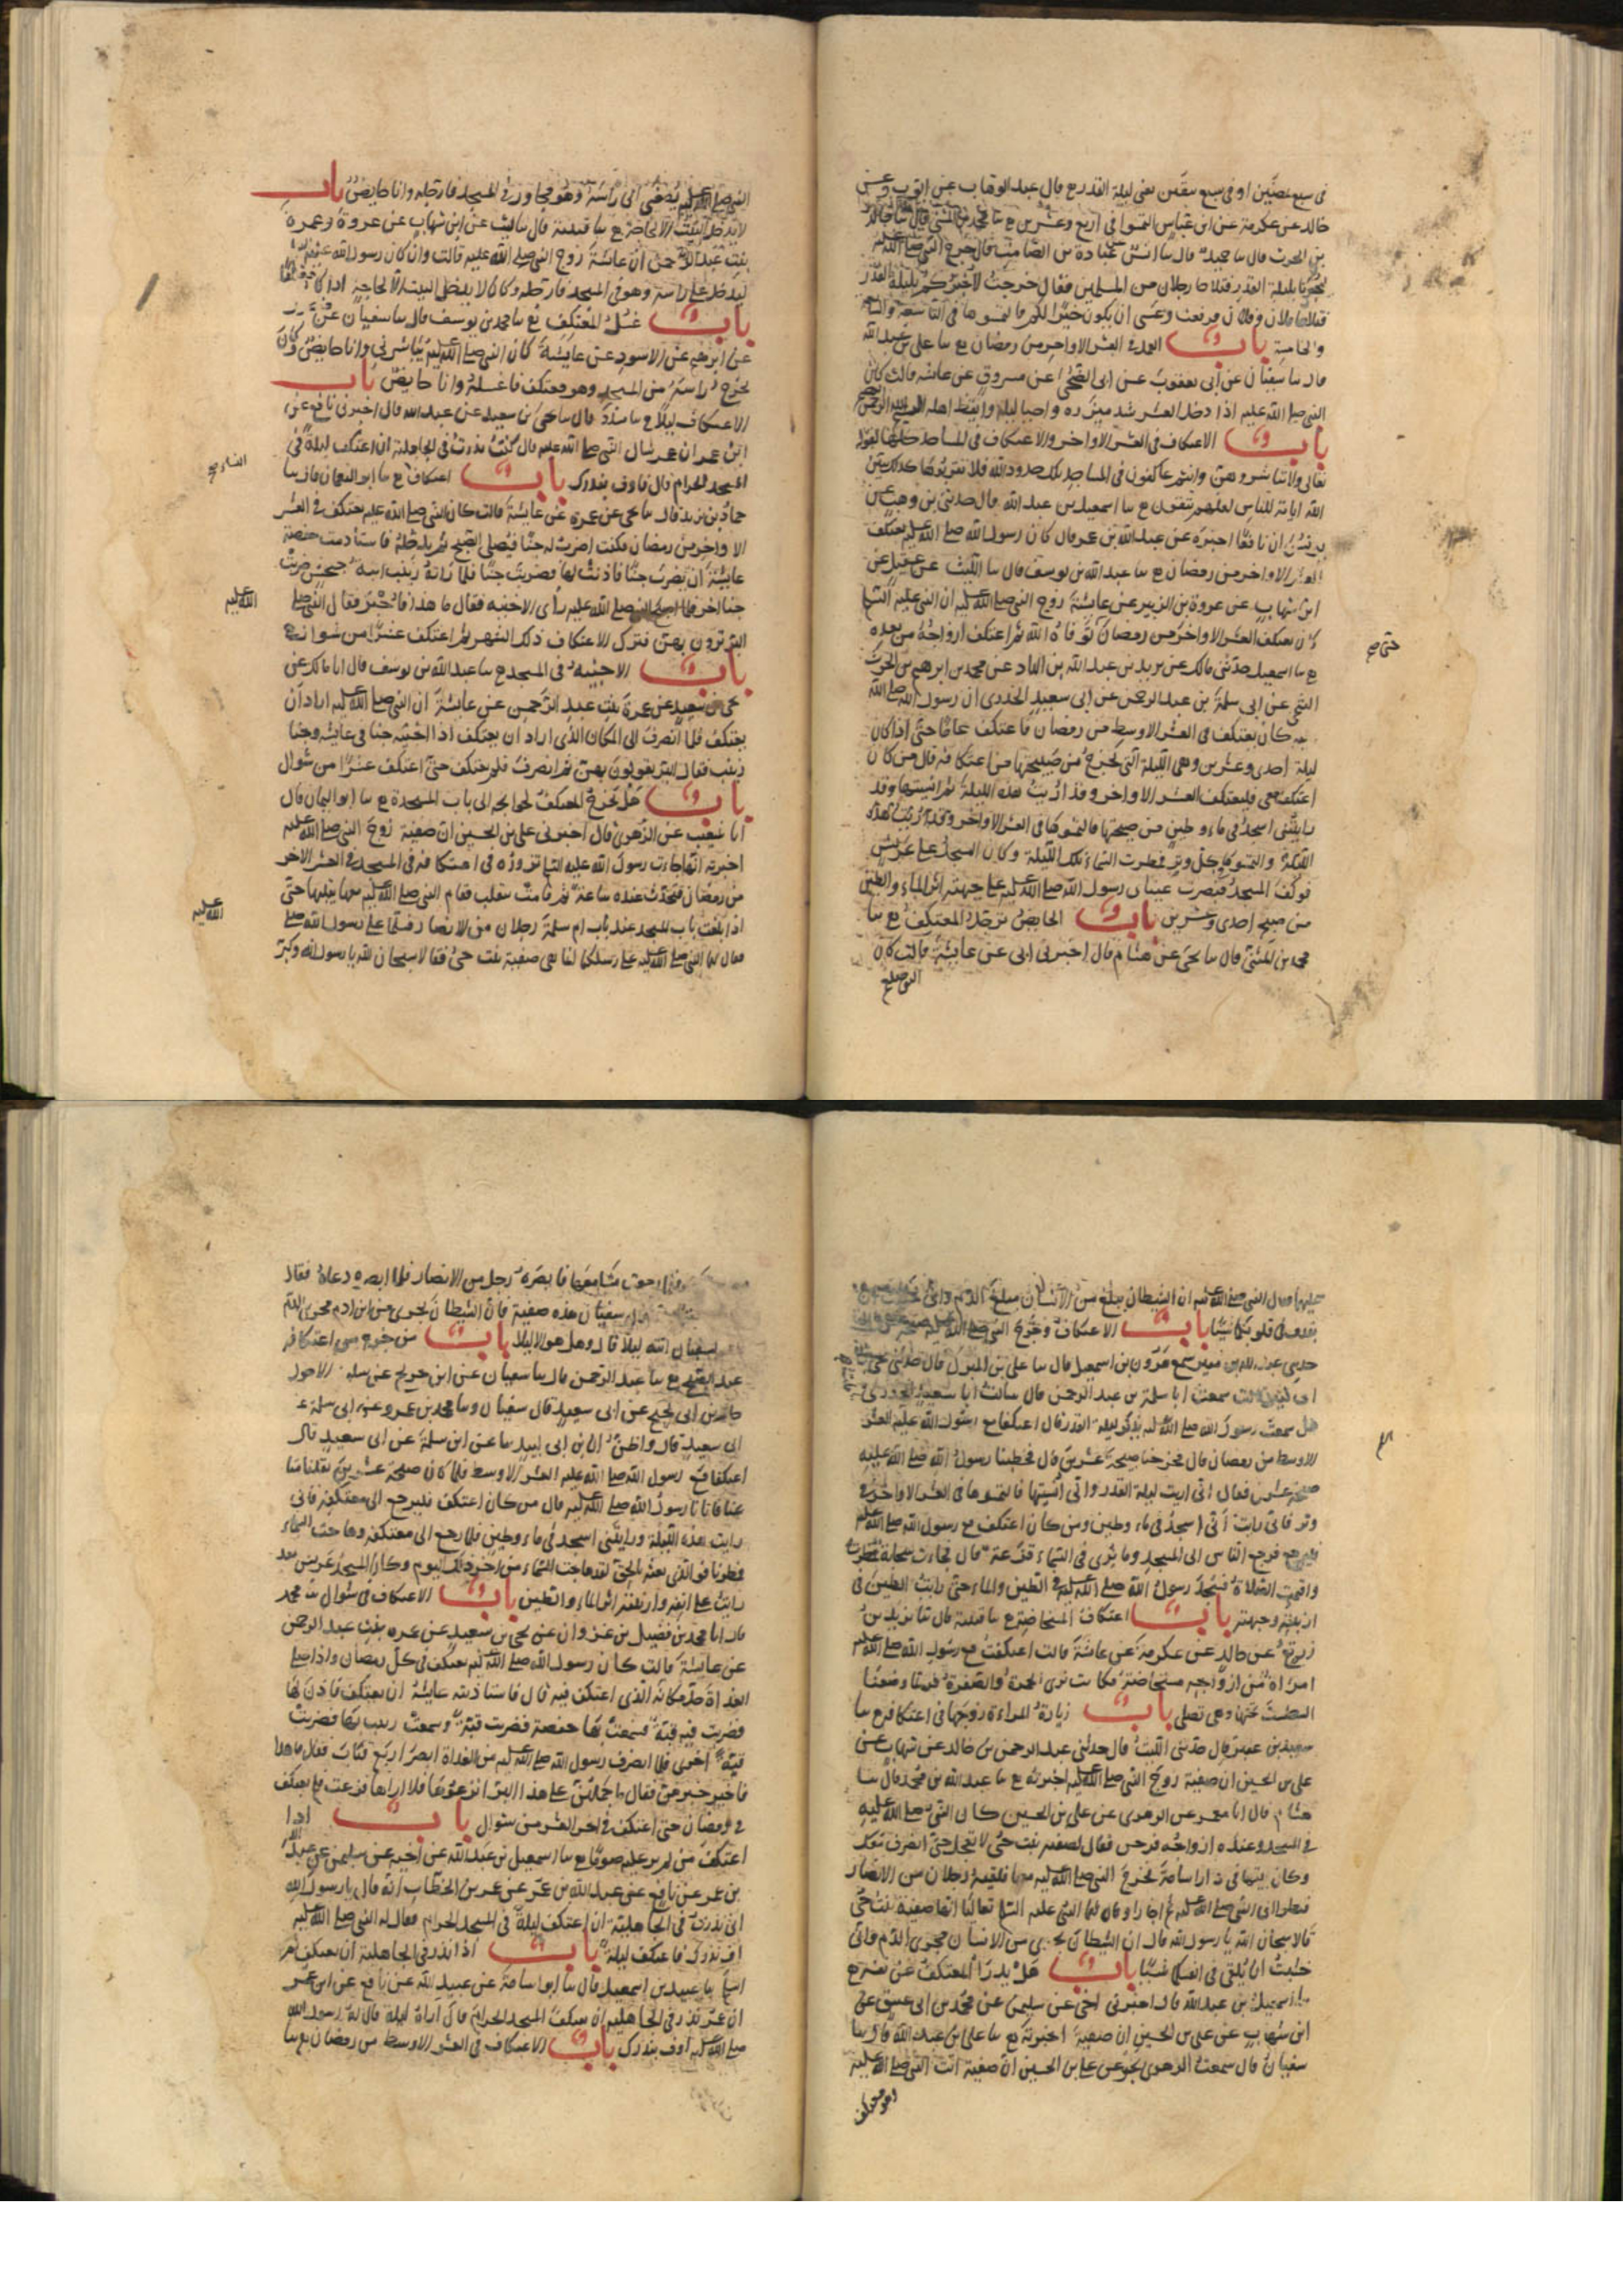 في سبع يمضين او في سبع يبقين يعني ليلة القدر ح قال عبد الوهاب عن ايوب وعن
خالد عن عكرمة عن ابن عباس التمسوا في اربع وعشرين ح سا محمد بن المثنى قال سا خالد
بن الحرث قال سا حميد قال سا انس عن عبادة بن الصامت قال خرج النبي صلى الله عليه
ليخبرنا بليلة القدر فتلاحا رجلان من المسلمين فقال خرجت لاخبركم بليلة القدر
فتلاحا فلان وفلان فرفعت وعسى ان يكون خيرا لكم فالتمسوها في التاسعة والسابعة
والخامسة باب العمل في العشر الاواخر من رمضان ح سا علي بن عبد الله
قال سا سفيان عن ابي يعفور عن ابي الضحى عن مسروق عن عائشة قالت كان
النبي صلى الله عليه اذا دخل العشر شد ميزره واحيا ليله وايقظ اهله
باب الاعتكاف في العشر الاواخر والاعتكاف في المساجد كلها لقوله
تعالى ولا تباشروهن وانتم عاكفون في المساجد تلك حدود الله فلا تقربوها كذلك يبين
الله اياته للناس لعلهم يتقون ح سا اسمعيل بن عبد الله قال حدثني ابن وهب عن
يونس ان نافعا اخبره عن عبد الله بن عمر قال كان رسول الله صلى الله عليه يعتكف
العشر الاواخر من رمضان ح سا عبد الله بن يوسف قال سا الليث عن عقيل عن
ابن شهاب عن عروة بن الزبير عن عايشة زوج النبي صلى الله عليه ان النبي عليه السلم
كان يعتكف العشر الاواخر من رمضان توفاه الله ثم اعتكف ازواجه من بعده
حتى صح
ح سا اسمعيل حدثني مالك عن يزيد بن عبد الله بن الهاد عن محمد بن ابرهيم بن الحرث
التيمي عن ابي سلمة بن عبد الرحمن عن ابي سعيد الخدري ان رسول الله صلى الله
عليه كان يعتكف في العشر الاوسط من رمضان فاعتكف عاما حتى اذا كان
ليلة احدى وعشرين وهي الليلة التي يخرج من صبيحتها من اعتكافه قال من كان
اعتكف معي فليعتكف العشر الاواخر وقد اريت هذه الليلة ثم انسيتها وقد
رايتني اسجد في ماء وطين من صبيحتها فالتمسوها في العشر الاواخر
والتمسوها في كل وتر فمطرت السماء تلك الليلة وكان المسجد على عريش
فوكف المسجد فبصرت عيناي رسول الله صلى الله عليه على جبهته اثر الماء والطين
من صبح احدى وعشرين باب الحايض ترجل المعتكف ح سا
محمد بن المثنى قال سا يحيى عن هشام قال اخبرني ابي عن عايشة قالت كان
النبي صلى
النبي صلى الله عليه يصغي الي راسه وهو مجاور في المسجد فارجله وانا حايض باب
لا يدخل البيت الا لحاجة ح سا قتيبة قال سا ليث عن ابن شهاب عن عروة وعمرة
بنت عبد الرحمن ان عايشة زوج النبي صلى الله عليه قالت وان كان رسول الله صلى الله عليه
ليدخل علي راسه وهو في المسجد فارجله وكان لا يدخل البيت الا لحاجة اذا كان معتكفا
باب غسل المعتكف ح سا محمد بن يوسف قال سا سفيان عن منصور
عن ابرهيم عن الاسود عن عايشة كان النبي صلى الله عليه يباشرني وانا حايض وكان
يخرج راسه من المسجد وهو معتكف فاغسله وانا حايض باب
الاعتكاف ليلا ح سا مسدد قال سا يحيى بن سعيد عن عبيد الله قال اخبرني نافع عن
ابن عمر ان عمر سال النبي صلى الله عليه قال كنت نذرت في الجاهلية ان اعتكف ليلة في
المسجد الحرام قال فاوف بنذرك باب اعتكاف ح سا ابو النعمان قال سا
النساء صح
حماد بن زيد قال سا يحيى عن عمرة عن عايشة قالت كان النبي صلى الله عليه يعتكف في العشر
الاواخر من رمضان فكنت اضرب له خبا فيصلي الصبح ثم يدخله فاستاذنت حفصة
عايشة ان تضرب خبا فاذنت لها فضربت خبا فلما راته زينب ابنة جحش ضربت
خبا اخر فلما اصبح النبي صلى الله عليه راى الاخبية فقال ما هذا فاخبر فقال النبي صلى
الله عليه
البر ترون بهن فترك الاعتكاف ذلك الشهر ثم اعتكف عشرا من شوال
باب الاخبية في المسجد ح سا عبد الله بن يوسف قال انا مالك عن
يحيى بن سعيد عن عمرة بنت عبد الرحمن عن عايشة ان النبي صلى الله عليه اراد ان
يعتكف فلما انصرف الى المكان الذي اراد ان يعتكف اذا اخبية خبا عايشة وخبا
زينب فقال البر تقولون بهن ثم انصرف فلم يعتكف حتى اعتكف عشرا من شوال
باب هل يخرج المعتكف لحوايجه الى باب المسجد ح سا ابو اليمان قال
انا شعيب عن الزهري قال اخبرني علي بن الحسين ان صفية زوج النبي صلى الله عليه
اخبرته انها جاءت رسول الله عليه السلم تزوره في اعتكافه في المسجد في العشر الاخر
من رمضان فتحدثت عنده ساعة ثم قامت تنقلب فقام النبي صلى الله عليه معها يقلبها حتى
اذا بلغت باب المسجد عند باب ام سلمة رجلان من الانصار فسلما على رسول الله صلى
الله عليه
فقال لهما النبي صلى الله عليه على رسلكما انما هي صفية بنت حيي فقالا سبحان الله يا رسول الله وكبر
عليهما فقال النبي صلى الله عليه ان الشيطان يبلغ من الانسان مبلغ الدم واني خشيت ان
يقذف في قلوبكما شيئا باب الاعتكاف وخروج النبي صلى الله عليه
عبد الله بن منير سمع هرون بن اسمعيل قال سا علي بن المبرك قال حدثني يحيى
سمعت ابا سلمة بن عبد الرحمن قال سالت ابا سعيد الخدري
هل سمعت رسول الله صلى الله عليه يذكر ليلة القدر قال اعتكفنا مع رسول الله عليه العشر
الاوسط من رمضان قال فخرجنا صبيحة عشرين قال فخطبنا رسول الله صلى الله عليه
صبيحة عشرين فقال اني اريت ليلة القدر واني انسيتها فالتمسوها في العشر الاواخر في
وتر فاني رايت اني اسجد في ماء وطين ومن كان اعتكف مع رسول الله صلى الله عليه
فليرجع فرجع الناس الى المسجد وما نرى في السماء قزعة قال فجاءت سحابة فمطرت
واقيمت الصلاة فسجد رسول الله صلى الله عليه في الطين والماء حتى رايت الطين في
ارنبته وجبهته باب اعتكاف المستحاضة ح سا قتيبة قال سا يزيد بن
زريع عن خالد عن عكرمة عن عائشة قالت اعتكفت مع رسول الله صلى الله عليه
امراة من ازواجه مستحاضة فكانت ترى الحمرة والصفرة فربما وضعنا
الطست تحتها وهي تصلي باب زيارة المراة زوجها في اعتكافه ح سا
سعيد بن عفير قال حدثني الليث قال حدثني عبد الرحمن بن خالد عن شهاب عن
علي بن الحسين ان صفية زوج النبي صلى الله عليه اخبرته ح سا عبد الله بن محمد قال سا
هشام قال انا معمر عن الزهري عن علي بن الحسين كان النبي صلى الله عليه
في المسجد وعنده ازواجه فرحن فقال لصفية بنت حيي لا تعجلي حتى انصرف معك
وكان بيتها في دار اسامة فخرج النبي صلى الله عليه معها فلقيه رجلان من الانصار
فنظرا الى النبي صلى الله عليه ثم اجازا وقال لهما النبي عليه السلم تعاليا انها صفية بنت حيي
قالا سبحان الله يا رسول الله قال ان الشيطان يجري من الانسان مجرى الدم واني
خشيت ان يلقي في انفسكما شيئا باب هل يدرا المعتكف عن نفسه ح
سا اسمعيل بن عبد الله قال اخبرني اخي عن سليمن عن محمد بن ابي عتيق عن
ابن شهاب عن علي بن الحسين ان صفية اخبرته ح سا علي بن عبد الله قال سا
سفيان قال سمعت الزهري يخبر عن علي بن الحسين ان صفية اتت النبي صلى الله عليه
وهو معتكف
فلما رجعت مشا معها فابصره رجل من الانصار فلما ابصره دعاه فقال
سفيان هذه صفية فان الشيطان يجري من ابن ادم مجرى الدم
لسفيان اتته ليلا قال وهل هو الا ليلا باب من خرج من اعتكافه
عند الصبح ح سا عبد الرحمن قال سا سفيان عن ابن جريج عن سليمن الاحول
خال ابن ابي نجيح عن ابي سعيد قال سفيان وسا محمد بن عمرو عن ابي سلمة عن
ابي سعيد قال واظن ان ابن ابي لبيد سا عن ابن سلمة عن ابي سعيد قال
اعتكفنا مع رسول الله صلى الله عليه العشر الاوسط فلما كان صبيحة عشرين نقلنا متا
عنا فاتانا رسول الله صلى الله عليه قال من كان اعتكف فليرجع الى معتكفه فاني
رايت هذه الليلة ورايتني اسجد في ماء وطين فلما رجع الى معتكفه وهاجت السماء
فمطرنا فوالذي بعثه بالحق لقد هاجت السماء من اخر ذلك اليوم وكان المسجد عريش فلقد
رايت على انفه وارنبته اثر الماء والطين باب الاعتكاف في شوال سا محمد
قال انا محمد بن فضيل بن غزوان عن يحيى بن سعيد عن عمرة بنت عبد الرحمن
عن عايشة قالت كان رسول الله صلى الله عليه يعتكف في كل رمضان واذا صلى
الغداة حل مكانه الذي اعتكف فيه قال فاستاذنته عايشة ان تعتكف فاذن لها
فضربت فيه قبة فسمعت بها حفصة فضربت قبة وسمعت زينب بها فضربت
قبة اخرى فلما انصرف رسول الله صلى الله عليه من الغداة ابصر اربع قباب فقال ما هذا
فاخبر خبرهن فقال ما حملهن على هذا البر انزعوها فلا اراها فنزعت فلم يعتكف
في رمضان حتى اعتكف في اخر العشر من شوال باب اذا
اعتكف من لم ير عليه صوما ح سا اسمعيل بن عبد الله عن اخيه عن سليمن عن عبيد الله
بن عمر عن نافع عن عبد الله بن عمر عن عمر بن الخطاب انه قال يا رسول الله
اني نذرت في الجاهلية ان اعتكف ليلة في المسجد الحرام فقال له النبي صلى الله عليه
اوف نذرك فاعتكف ليلة باب اذا نذر في الجاهلية ان يعتكف ثم
اسلم سا عبيد بن اسمعيل قال سا ابو اسامة عن عبيد الله عن نافع عن ابن عمر
ان عمر نذر في الجاهلية ان يعتكف المسجد الحرام قال اراه ليلة قال له رسول الله
صلى الله عليه اوف بنذرك باب الاعتكاف في العشر الاوسط من رمضان ح سا